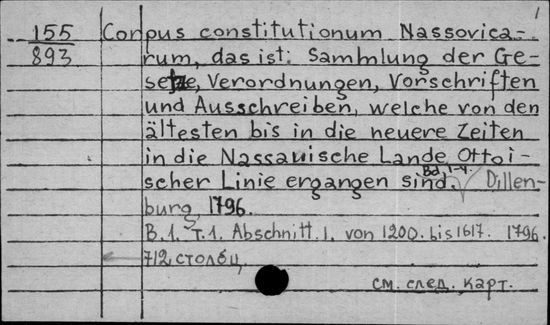 1
155
893
Corpus constitutionum Nassovica-
rum, das ist: Sammlung der Ge-
setze, Verordnungen, Vorschriften
und Ausschreiben, welche von den
ältesten bis in die neuere Zeiten
in die Nassauische Lande Ottoi-
scher Linie ergangen sind. Bd. 1-4. Dillen-
burg, 1796.
B.1. т.1. Abschnitt.1. von 1200. bis 1617. 1796.
712 столбц.
см. след. карт.